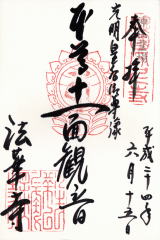 奉拝
光明皇后御尊像
本尊十一面観音
法華寺
平成二十四年
六月十五日